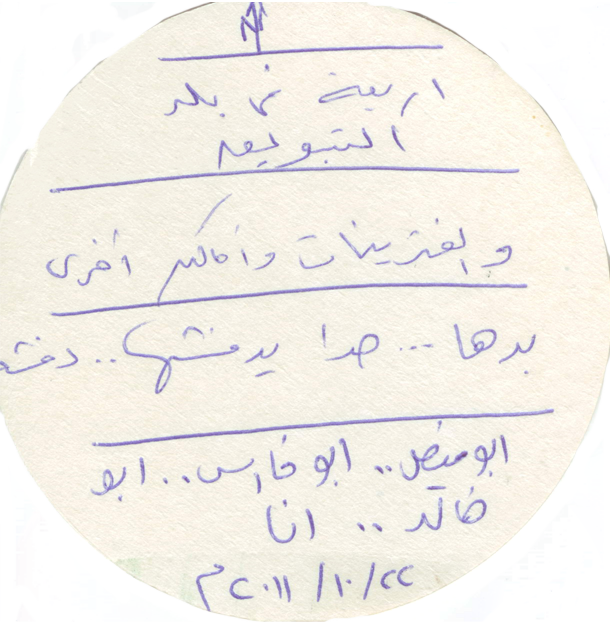 اربعة في بلد
التبويعه
والفتزينات واماكن اخرى
بدها... حدا يدفشها.. دفشه
ابو فيصل.. ابو فارس.. ابو
خالد.. انا
٢٢/١٠/٢٠١١م